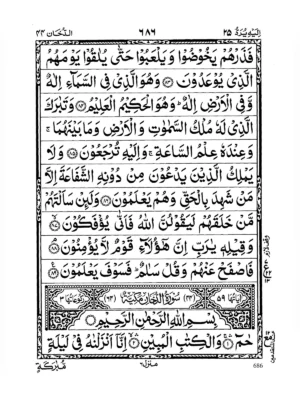 الیه یرد ۲۵ ۶۸۶ الدخان ۴۴
فَذَرْهُمْ يَخُوْضُوْا وَيَلْعَبُوْا حَتّٰى يُلٰقُوْا يَوْمَهُمُ
الَّذِىْ يُوْعَدُوْنَ ۝۸۳ وَهُوَ الَّذِىْ فِى السَّمَآءِ اِلٰهٌ
وَّفِى الْاَرْضِ اِلٰهٌ ؕ وَهُوَ الْحَكِيْمُ الْعَلِيْمُ ۝۸۴ وَتَبٰرَكَ
الَّذِىْ لَهٗ مُلْكُ السَّمٰوٰتِ وَالْاَرْضِ وَمَا بَيْنَهُمَا ۚ
وَعِنْدَهٗ عِلْمُ السَّاعَةِ ۚ وَاِلَيْهِ تُرْجَعُوْنَ ۝۸۵ وَلَا
يَمْلِكُ الَّذِيْنَ يَدْعُوْنَ مِنْ دُوْنِهِ الشَّفَاعَةَ اِلَّا
مَنْ شَهِدَ بِالْحَقِّ وَهُمْ يَعْلَمُوْنَ ۝۸۶ وَلَئِنْ سَاَلْتَهُمْ
مَّنْ خَلَقَهُمْ لَيَقُوْلُنَّ اللّٰهُ فَاَنّٰى يُؤْفَكُوْنَ ۝۸۷
وَقِيْلِهٖ يٰرَبِّ اِنَّ هٰٓؤُلَآءِ قَوْمٌ لَّا يُؤْمِنُوْنَ ۝۸۸
فَاصْفَحْ عَنْهُمْ وَقُلْ سَلٰمٌ ؕ فَسَوْفَ يَعْلَمُوْنَ ۝۸۹
اٰيَاتُهَا ۵۹ (۴۴) سُوْرَةُ الدُّخَانِ مَكِّيَّةٌ (۶۴) رُكُوْعَاتُهَا ۳
بِسْمِ اللّٰهِ الرَّحْمٰنِ الرَّحِيْمِ
حٰمٓ ۝۱ وَالْكِتٰبِ الْمُبِيْنِ ۝۲ اِنَّاۤ اَنْزَلْنٰهُ فِىْ لَيْلَةٍ
مُّبٰرَكَةٍ منزل ۶ 686